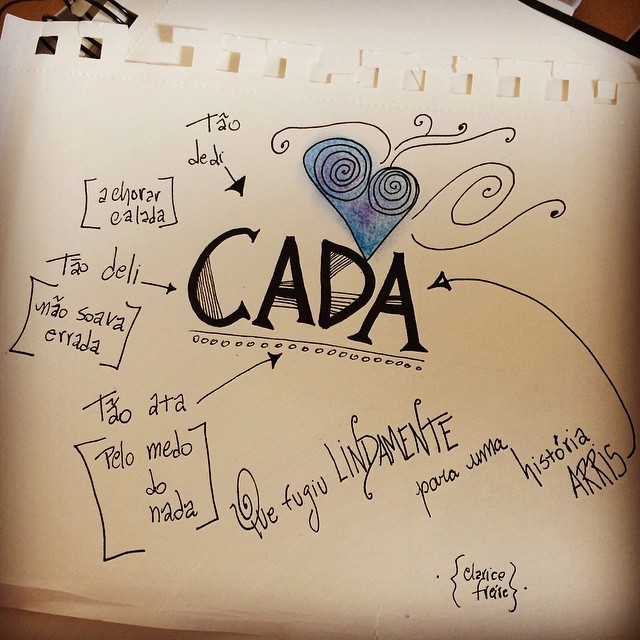 Tão
dedi
CADA
[a chorar
calada]
Tão deli
[não soava
errada]
Tão ata
[Pelo medo
do
nada]
Que fugiu LINDAMENTE para uma história ARRIS
{clarice
freire}